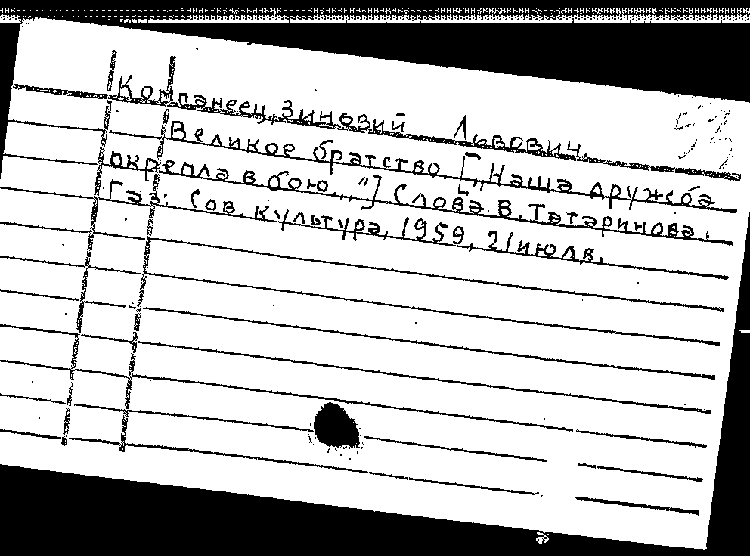 Компанеец, Зиновий Львович.
Великое братство ["Наша дружба
окрепла в бою..."] Слова В. Татаринова.
Газ: Сов. культура, 1959, 21 июля.